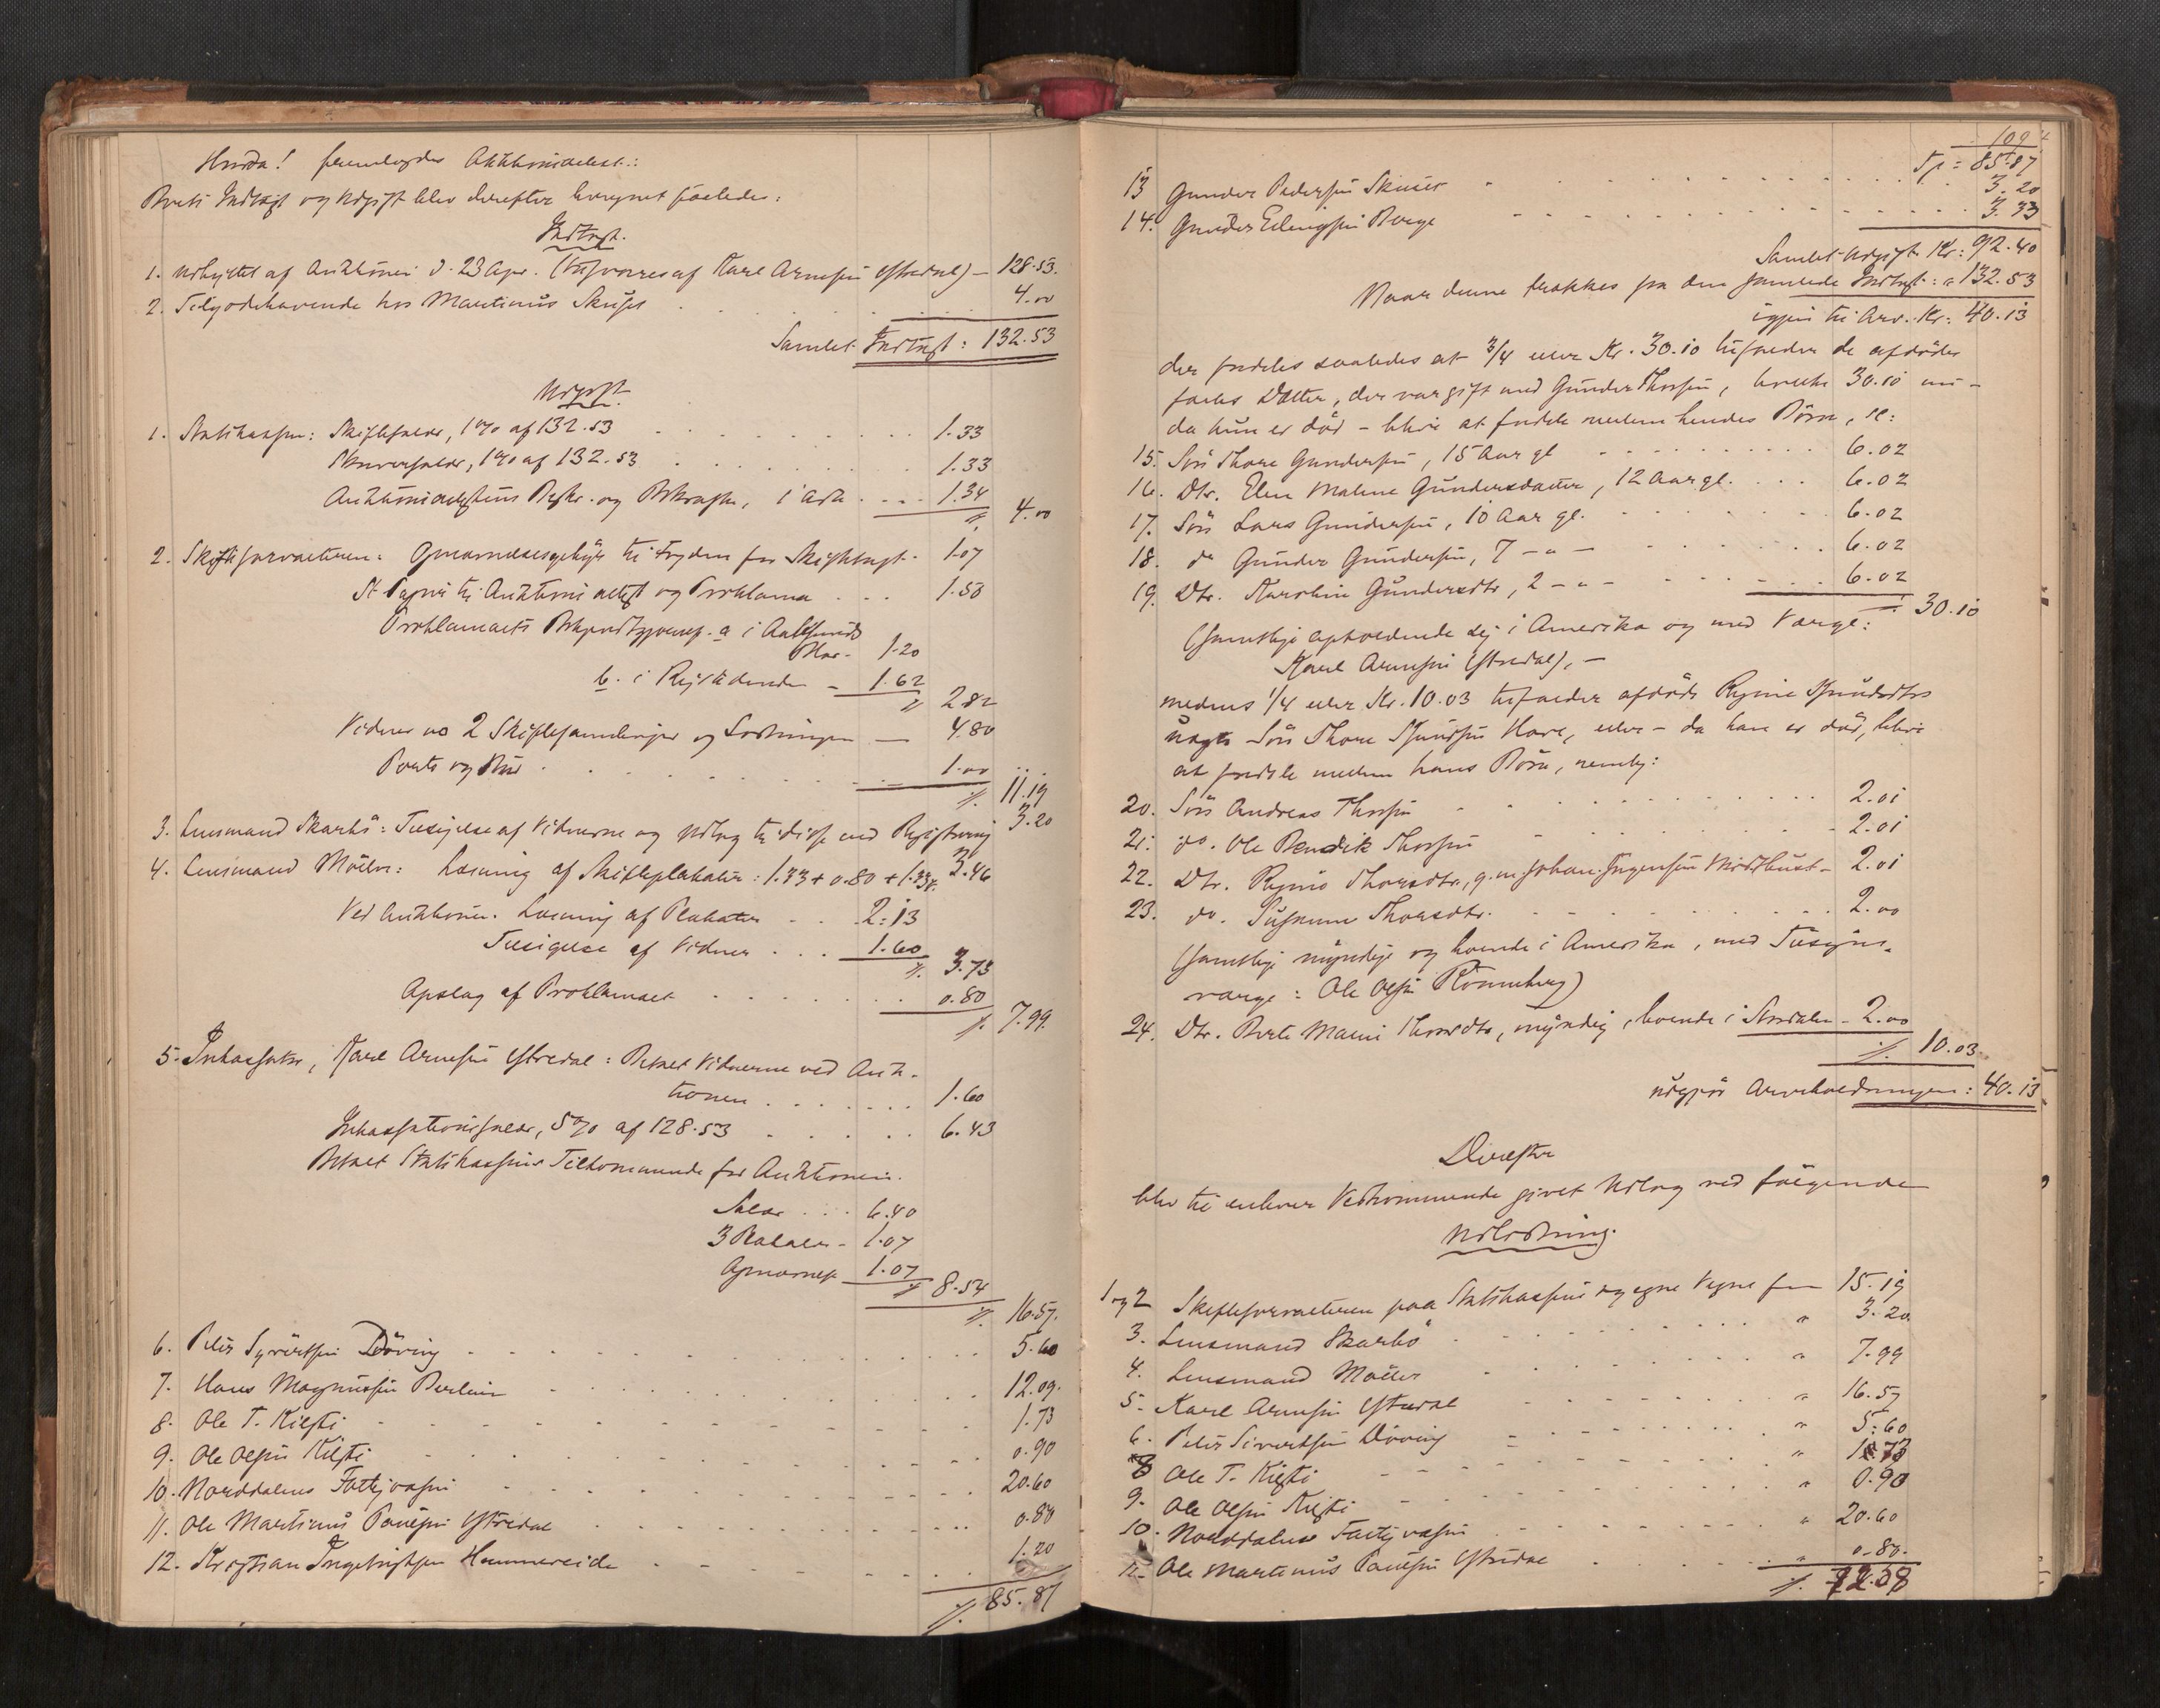 Hvoda! fremlagdes Auktionsactet.:
Boets Indtægt og Udgift blev derefter beregnet saaledes:
Indtægt.
1. Udbyttet af Auktionen d. 23 Apr. (tilsvares af Karl Arnesen Ytredal) — 128.53.
2. Tilgodehavende hos Martinus Skuset . . . 4.00
Samlet Indtægt: 132.53
Udgift.
1. Statskassen: Skiftesalær, 1% af 132.53 . . . 1.33
Skriversalær, 1% af 132.53 . . . 1.33
Auktionsactetens Beskr. og Bekræft., 1 ark . . . 1.34
/. 4.00
2. Skifteforvalteren: til Foged for Skifte 1.07
St. Papir til Auktionsactet og Proklama . . . 1.50
Proklamaets a i Aalesunds
Av. 1.20
b. i Rigstidende - 1.62
/. 2.82
Vidner vo 2 Skiftesamlinger og Lodningen — 4.80
Porto og Bud . . . 1.00
/. 11.19
3. Lensmand Skarbø: Tilsigelse af Vidnerne og Udlæg til disse ved Registrering 3.20
4. Lensmand Møller: Læsning af Skifteplakater: 1.33 + 0.80 + 1.33 /. 3.46
Ved Auktionen. Læsning af Plakater . . . 2.13
Tilsigelse af Vidner . . . 1.60
/. 3.73
Opslag af Proklamaet . . . 0.80
/. 7.99.
5. Inkassator, Karl Arnesen Ytredal: Betalt Vidnerne ved Auk-
tionen . . . 1.60
Inkassationssalær, 5% af 128.53 . . . 6.43
Betalt Statskassens Tilkommende for Auktionen.
Salær . . . 6.40
3 Plakater - 1.07
1.07
/. 8.54
/. 16.57.
6. Peter Syvertsen Døving . . . 5.60
7. Hans Magnussen Berlin . . . 12.09.
8. Ole T. Kilsti . . . 1.73
9. Ole Olsen Kilsti . . . 0.90
10. Norddalens Fattigvæsen . . . 20.60
11. Ole Martinus Paulsen Ytredal . . . 0.80
12. Kristian Ingebrigtsen Hammereide . . . 1.20
/. 85.87
109
Tp = 85.87
13 Gunder Pedersen Skuset . . . 3.20
14. Gunder Erlingsen Berge . . . 3.33
Samlet Udgift Kr: 92.40
Naar denne trækkes fra den samlede Indtægt: " 132.53
igjen til Arv. Kr: 40.13
der fordeles saaledes at 3/4 eller Kr. 30.10 tilfalder de afdødes
fælles Datter, der var gift med Gunder Thorsen, hvilke 30.10 nu -
da hun er død - bliver at fordele mellem hendes Børn, sc:
15. Søn Thore Gundersen, 15 Aar gl . . . 6.02
16. Dtr. Elen Malene Gundersdatter, 12 Aar gl. . . . 6.02
17. Søn Lars Gundersen, 10 Aar gl. . . . 6.02
18. do Gunder Gundersen, 7 - " - . . . 6.02
19. Dtr. Karoline Gundersdtr, 2 - " - . . . 6.02
/. 30.10
(samtlige opholdende sig i Amerika og med Værge:
Karl Arnesen Ytredal), —
medens 1/4 eller Kr. 10.03 tilfalder afdøde Regine Knudsdtrs
uægte Søn Thore Knudsen Hove, eller - da han er død, blive
at fordele mellem hans Børn, nemlig:
20. Søn Andreas Thorsen . . . 2.01
21. do. Ole Bendik Thorsen . . . 2.01
22. Dtr. Regine Thorsdtr, g.m. Johan Jørgensen - 2.01
23. do. Susanne Thorsdtr. . . . 2.00
(samtlige myndige og boende i Amerika, med Tilsyns-
værge: Ole Olsen Rønneberg)
24. Dtr. Berte Marie Thorsdtr, myndig, boende i Stordalen - 2.00
/. 10.03
udgjør Arvebeholdningen: 40.13
Derefter
blev til enhver Vedkommende givet Udlæg ved følgende
Udlodning.
1 og 2 Skifteforvalteren paa Statskassens og egne Vegne for 15.19
3. Lensmand Skarbø . . . " 3.20
4. Lensmand Møller . . . " 7.99
5. Karl Arnesen Ytredal . . . " 16.57
6. Peter Sivertsen Døving . . . " 5.60
8 Ole T. Kilsti . . . " 1.73
9. Ole Olsen Kilsti . . . " 0.90
10. Norddalens Fattigvæsen . . . " 20.60
11. Ole Martinus Paulsen Ytredal . . . " 0.80.
/. 72.58